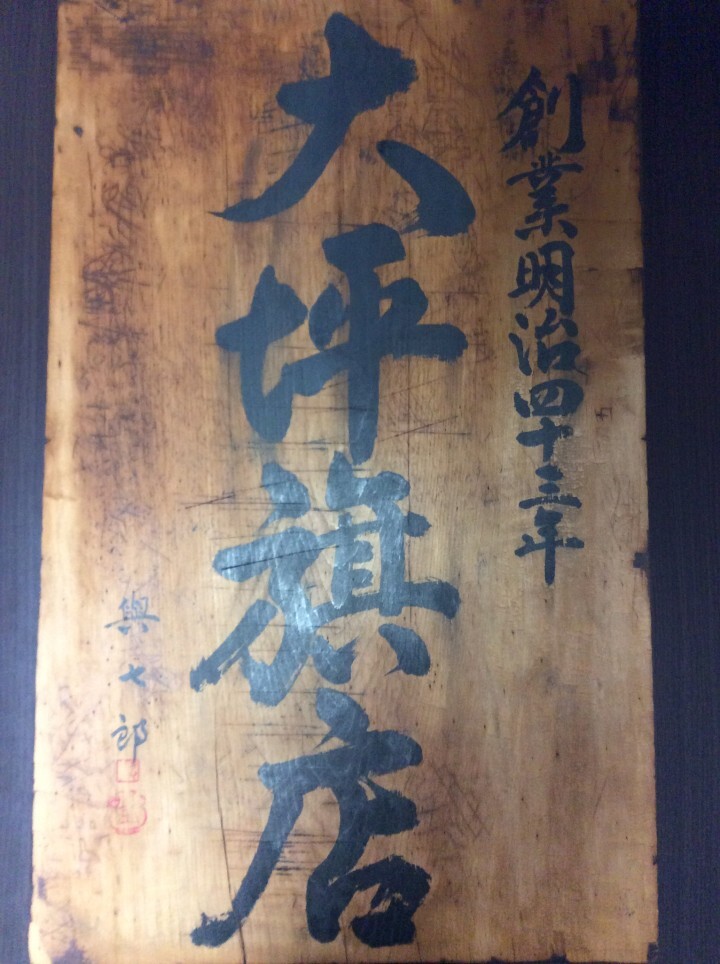 創業明治四十三年
大坪旗店
與七郎